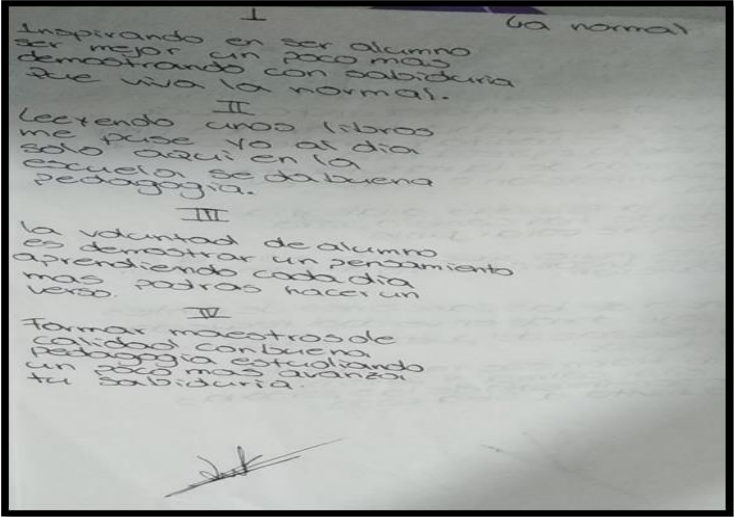 La normal
I
Inspirando en ser alumno
ser mejor un poco mas
demostrando con sabiduria
Que viva la normal.
II
Leeyendo unos libros
me puse yo al dia
solo aqui en la
escuela se da buena
pedagogia.
III
la voluntad de alumno
es demostrar un pensamiento
aprendiendo cada dia
mas podras hacer un
verso.
IV
Formar maestros de
calidad con buena
pedagogia estudiando
un poco mas avanza
tu sabiduria.